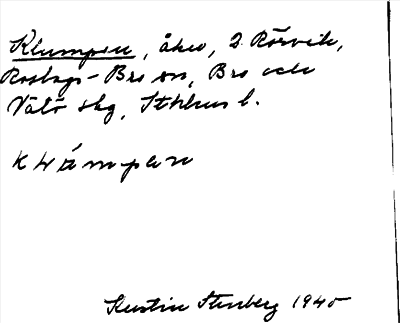 Klumpen, åker, D. Rörvik,
Roslags-Bro sn, Bro och
Vätö skg, Sthlms l.
klámpen
Kerstin Stenberg 1940